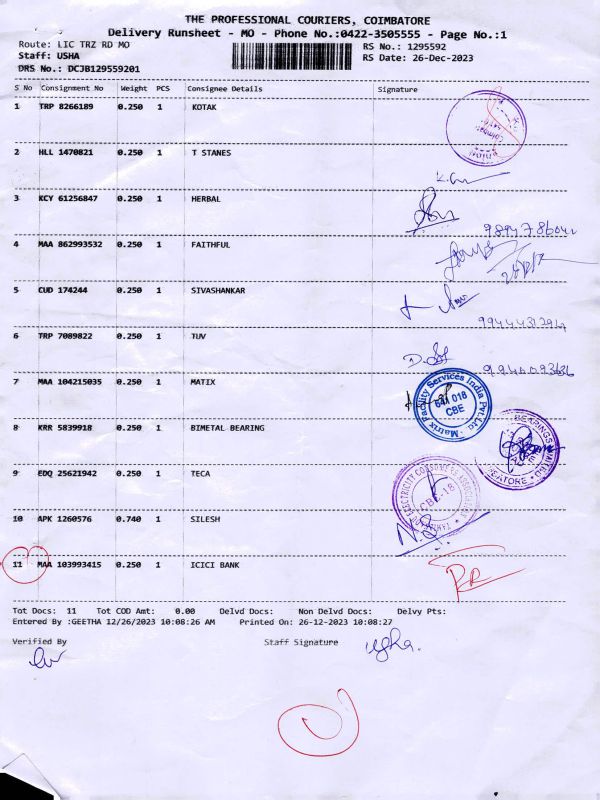 THE PROFESSIONAL COURIERS, COIMBATORE
Delivery Runsheet - MO - Phone No.:0422-3505555 - Page No.:1
Route: LIC TRZ RD MO RS No.: 1295592
Staff: USHA RS Date: 26-Dec-2023
DRS No.: DCJB129559201
S No Consignment No Weight PCS Consignee Details Signature
1 TRP 8266189 0.250 1 KOTAK
2 HLL 1470821 0.250 1 T STANES
3 KCY 61256847 0.250 1 HERBAL
4 MAA 862993532 0.250 1 FAITHFUL
5 CUD 174244 0.250 1 SIVASHANKAR
6 TRP 7089822 0.250 1 TUV
7 MAA 104215035 0.250 1 MATIX
Matrix Facility Services India Pvt.Ltd
641 018
CBE
8 KRR 5839918 0.250 1 BIMETAL BEARING
BEARINGS LIMITED
9 EDQ 25621942 0.250 1 TECA
CBE-18
10 APK 1260576 0.740 1 SILESH
11 MAA 103993415 0.250 1 ICICI BANK
RR
Tot Docs: 11 Tot COD Amt: 0.00 Delvd Docs: Non Delvd Docs: Delvy Pts:
Entered By :GEETHA 12/26/2023 10:08:26 AM Printed On: 26-12-2023 10:08:27
Verified By Staff Signature
usha.